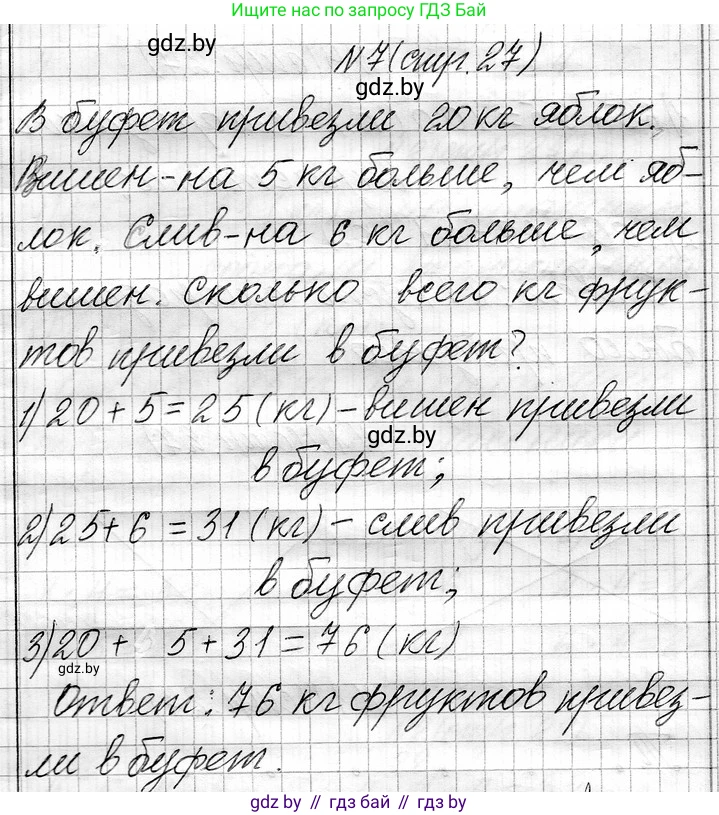 Ищите нас по запросу ГДЗ Бай
gdz.by
№7(стр.27)
gdz.by
В буфет привезли 20 кг яблок.
Вишен-на 5 кг больше, чем яб-
лок. Слив-на 6 кг больше, чем
вишен. Сколько всего кг фрук-
тов привезли в буфет?
1) 20 + 5 = 25 (кг) - вишен привезли
gdz.by
в буфет;
2) 25+6 = 31 (кг) - слив привезли
в буфет;
3) 20 + 5 + 31 = 76 (кг)
gdz.by
Ответ: 76 кг фруктов привез-
ли в буфет.
gdz.by // гдз бай // gdz.by